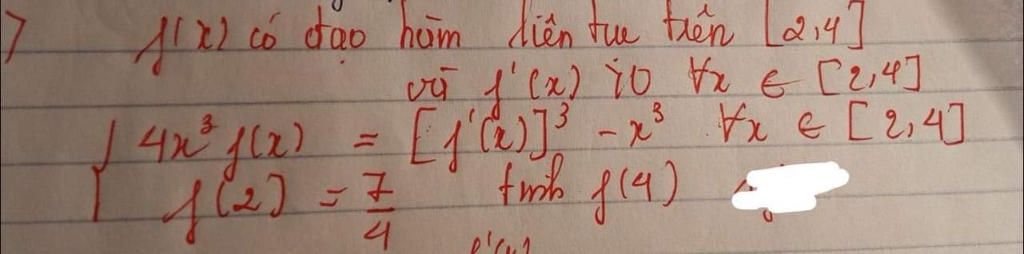 7 f(x) có đạo hàm liên tục trên [2,4]
và f'(x) > 0 ∀x ∈ [2,4]
{ 4x³f(x) = [f'(x)]³ - x³ ∀x ∈ [2,4]
f(2) = 7/4 tính f(4)
f'(x)